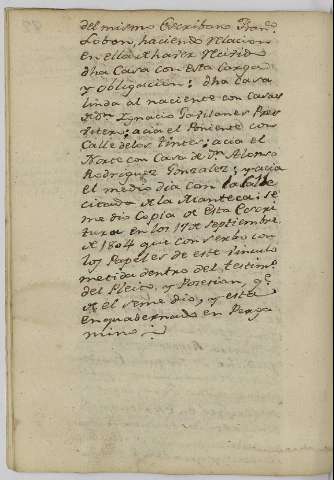 del mismo Escribano Franco.
Lobon, haciendo relacion
en ella haver Recivido
dha Casa con esta Carga
y obligacion; dha Casa
linda al naciente con Casas
de Dn. Ignacio Presvi-
tero; acia el Poniente con
Calle de los Tintes; acia el
Norte con Casa de Dn. Alonso
Rodriguez Gonzalez; y acia
el medio dia con la Calle
citada de la Manteca; se
me dio Copia de esta Escri
tura en los 17 de Septiembre
de 1804 que conserbo con
los Papeles de este vinculo
metida dentro del testimo.
del Pleito, y Posesion, qe.
de el se me dio, y esta
enquadernado en Perga
mino